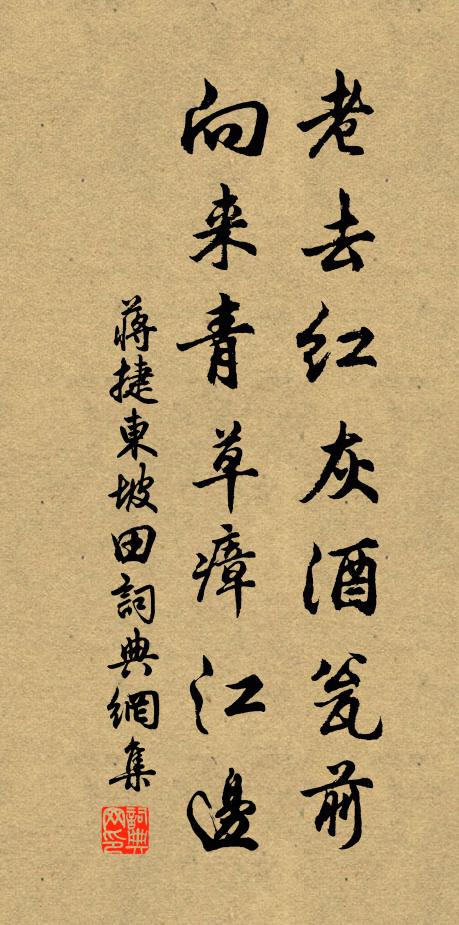 老去红灰酒瓮前
向来青草瘴江邊
蒋捷東坡田詞典網集
詞典网印